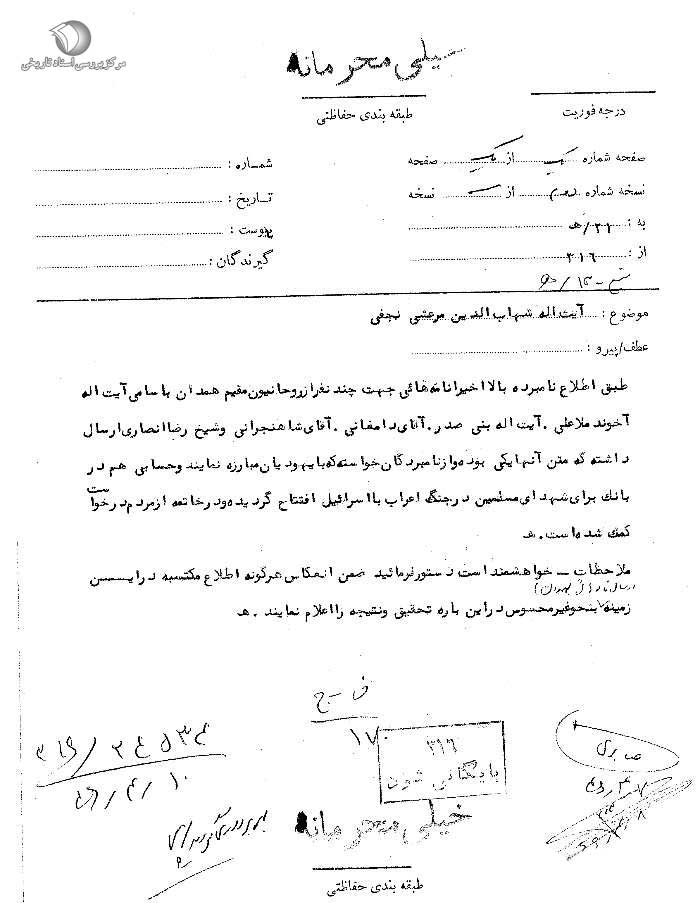 مرکز بررسی اسناد تاریخی
خیلی محرمانه
درجه فوریت
طبقه بندی حفاظتی
صفحه شماره یک از یک صفحه
شماره :
نسخه شماره از نسخه
تاریخ :
به : ۲۱/ه
پیوست :
از : ۳۱۶
گیرندگان :
موضوع : آیت اله شهاب الدین مرعشی نجفی
عطف/پیرو :
طبق اطلاع نامبرده بالا اخیرا نامه هائی جهت چند نفر از روحانیون مقیم همدان باسامی آیت اله
آخوند ملاعلی . آیت اله بنی صدر . آقای دامغانی . آقای شاهنجرانی وشیخ رضا انصاری ارسال
داشته که متن آنها یکی بوده واز نامبردگان خواسته که با یهودیان مبارزه نمایند وحسابی هم در
بانک برای شهدای مسلمین در جنگ اعراب با اسرائیل افتتاح گردیده ودر خاتمه از مردم درخواست
کمک شده است . ه
ملاحظات – خواهشمند است دستور فرمائید ضمن انعکاس هرگونه اطلاع مکتسبه در ایسن
زمینه بنحو غیر محسوس در این باره تحقیق ونتیجه را اعلام نمایند . ه
۱۷
۳۱۶
بایگانی شود
صابری
خیلی محرمانه
طبقه بندی حفاظتی